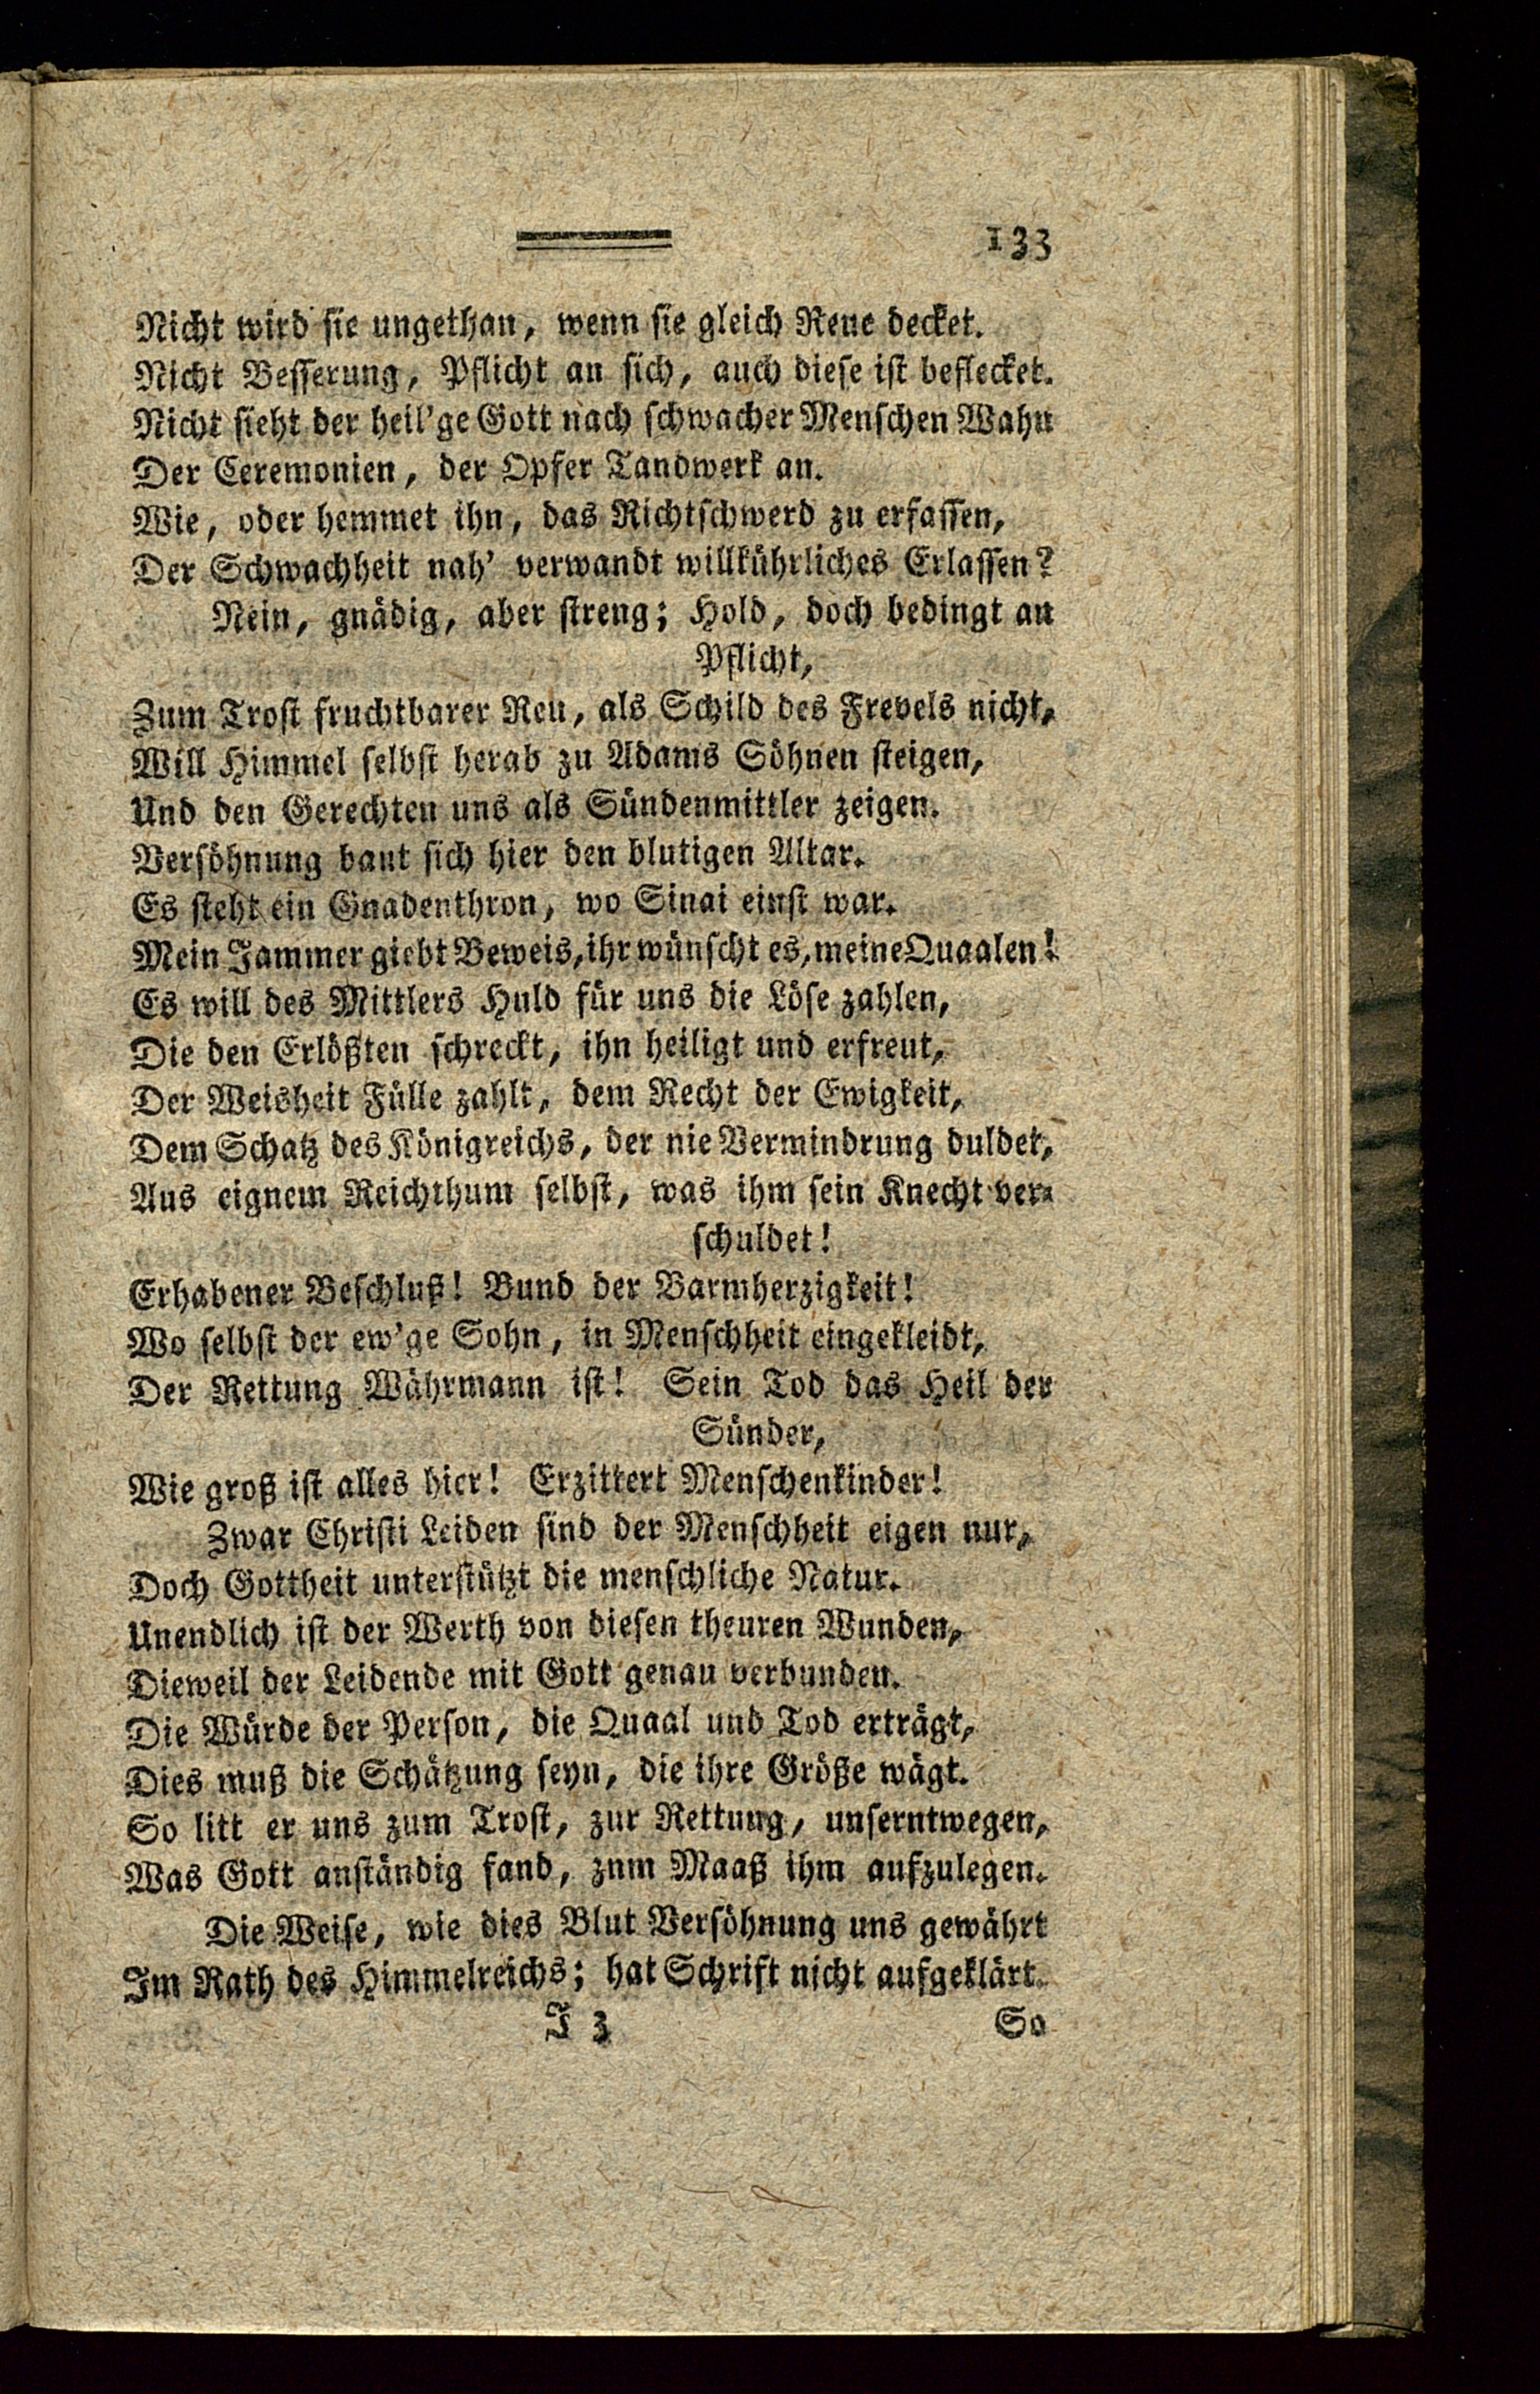 133
Nicht wird sie ungethan, wenn sie gleich Reue decket.
Nicht Besserung, Pflicht an sich, auch diese ist beflecket.
Nicht sieht der heil'ge Gott nach schwacher Menschen Wahn
Der Ceremonien, der Opfer Tandwerk an.
Wie, oder hemmet ihn, das Richtschwerd zu erfassen,
Der Schwachheit nah' verwandt willkührliches Erlassen?
Nein, gnädig, aber streng; Hold, doch bedingt an
Pflicht,
Zum Trost fruchtbarer Reu, als Schild des Frevels nicht,
Will Himmel selbst herab zu Adams Söhnen steigen,
Und den Gerechten uns als Sündenmittler zeigen.
Versöhnung baut sich hier den blutigen Altar.
Es steht ein Gnadenthron, wo Sinai einst war.
Mein Jammer giebt Beweis, ihr wünscht es, meine Quaalen!
Es will des Mittlers Huld für uns die Löse zahlen,
Die den Erlößten schreckt, ihn heiligt und erfreut,
Der Weisheit Fülle zahlt, dem Recht der Ewigkeit,
Dem Schatz des Königreichs, der nie Vermindrung duldet,
Aus eignem Reichthum selbst, was ihm sein Knecht ver-
schuldet!
Erhabener Beschluß! Bund der Barmherzigkeit!
Wo selbst der ew'ge Sohn, in Menschheit eingekleidt,
Der Rettung Währmann ist! Sein Tod das Heil der
Sünder,
Wie groß ist alles hier! Erzittert Menschenkinder!
Zwar Christi Leiden sind der Menschheit eigen nur,
Doch Gottheit unterstützt die menschliche Natur.
Unendlich ist der Werth von diesen theuren Wunden,
Dieweil der Leidende mit Gott genau verbunden.
Die Würde der Person, die Quaal und Tod erträgt,
Dies muß die Schätzung seyn, die ihre Größe wägt.
So litt er uns zum Trost, zur Rettung, unserntwegen,
Was Gott anständig fand, zum Maaß ihm aufzulegen.
Die Weise, wie dies Blut Versöhnung uns gewährt
Im Rath des Himmelreichs; hat Schrift nicht aufgeklärt.
J 3 So